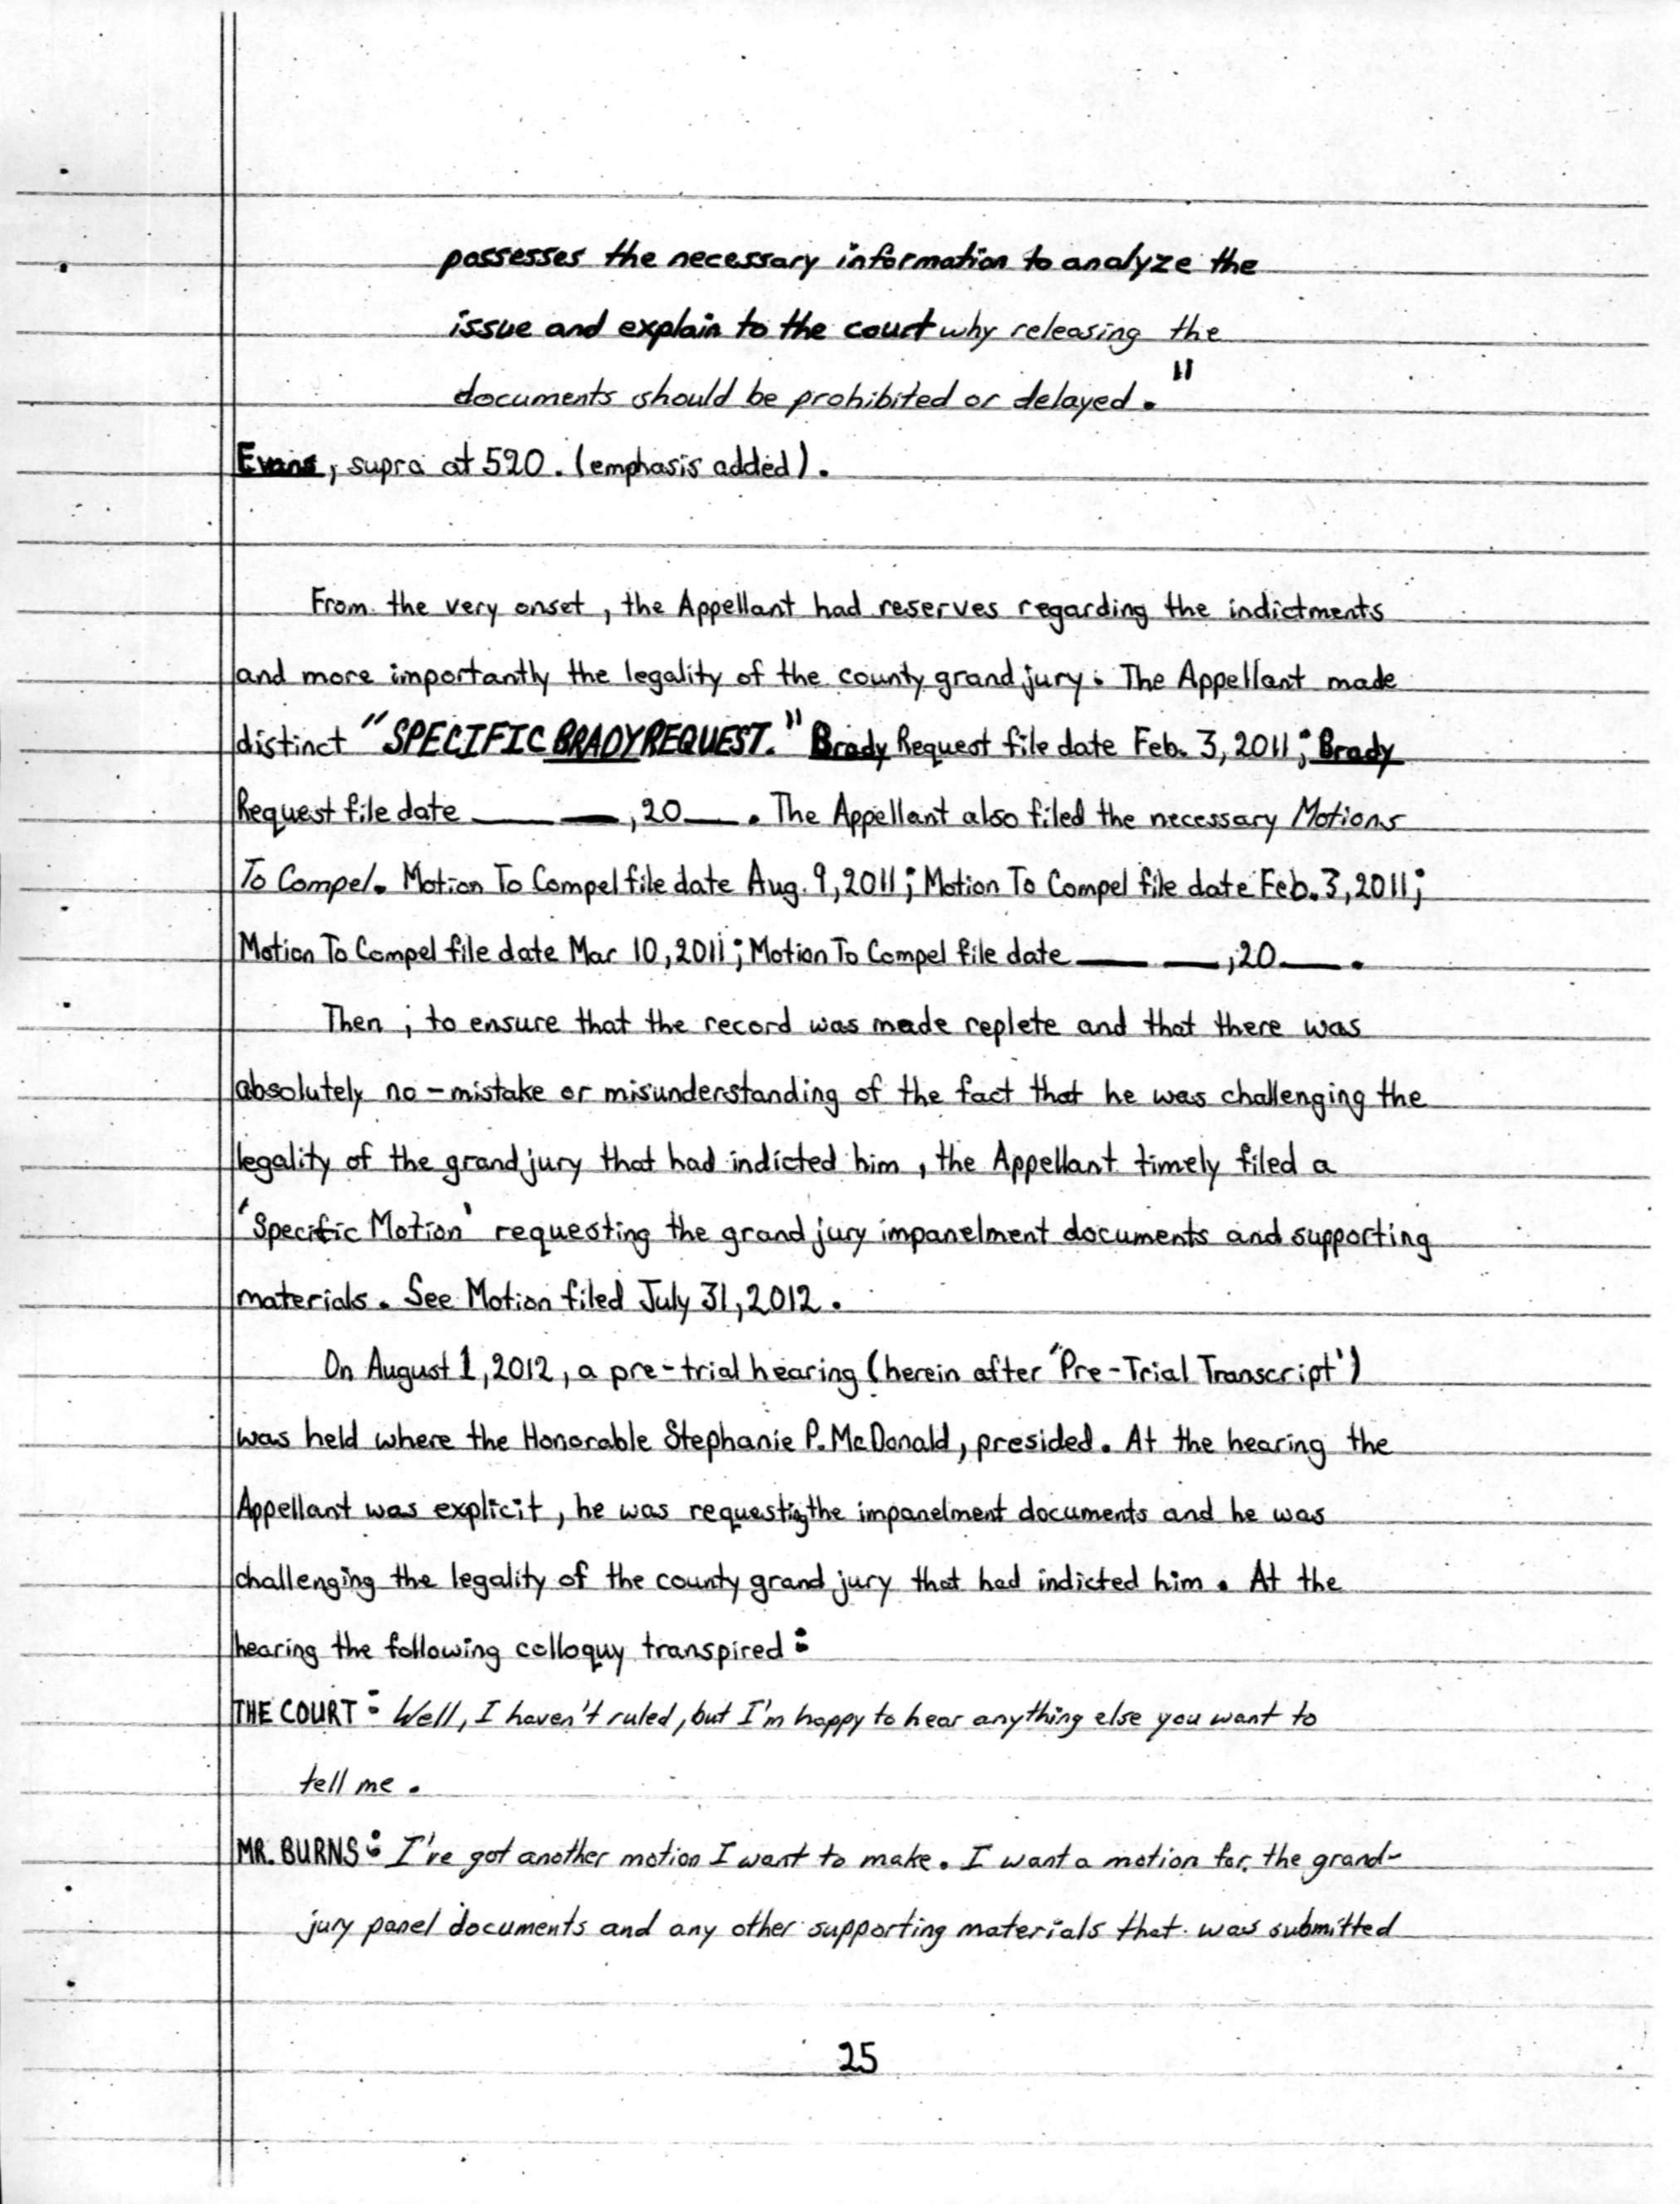 possesses the necessary information to analyze the
issue and explain to the court why releasing the
documents should be prohibited or delayed."
Evans, supra at 520. (emphasis added).
From the very onset, the Appellant had reserves regarding the indictments
and more importantly the legality of the county grand jury. The Appellant made
distinct "SPECIFIC BRADY REQUEST." Brady Request file date Feb. 3, 2011; Brady
Request file date ___ ___, 20___. The Appellant also filed the necessary Motions
To Compel. Motion To Compel file date Aug. 9, 2011; Motion To Compel file date Feb. 3, 2011;
Motion To Compel file date Mar 10, 2011; Motion To Compel file date ___ ___, 20___.
Then, to ensure that the record was made replete and that there was
absolutely no-mistake or misunderstanding of the fact that he was challenging the
legality of the grand jury that had indicted him, the Appellant timely filed a
'Specific Motion' requesting the grand jury impanelment documents and supporting
materials. See Motion filed July 31, 2012.
On August 1, 2012, a pre-trial hearing (herein after "Pre-Trial Transcript')
was held where the Honorable Stephanie P. McDonald, presided. At the hearing the
Appellant was explicit, he was requesting the impanelment documents and he was
challenging the legality of the county grand jury that had indicted him. At the
hearing the following colloquy transpired:
THE COURT: Well, I haven't ruled, but I'm happy to hear anything else you want to
tell me.
MR. BURNS: I've got another motion I want to make. I want a motion for the grand-
jury panel documents and any other supporting materials that was submitted
25